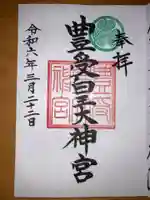 奉拝
豊受皇大神宮
令和六年三月二十二日